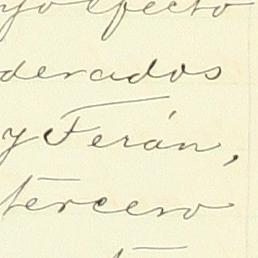 yo efecto
derados
y Terán,
tercero